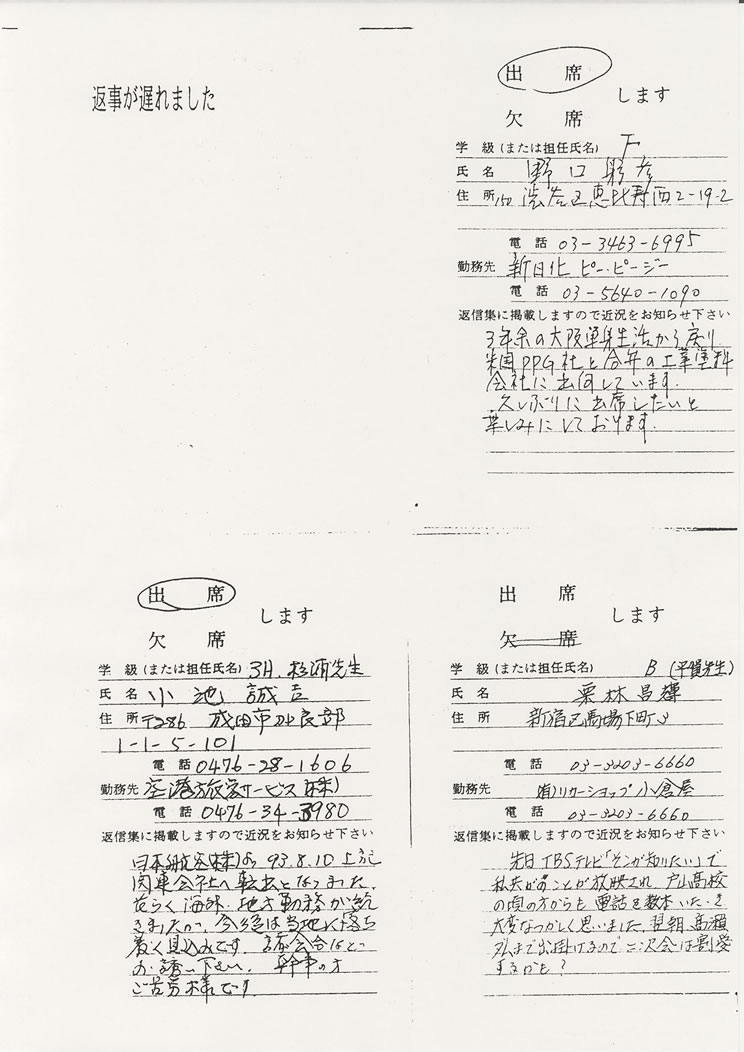 返事が遅れました
出 席
します
欠 席
学 級(または担任氏名) F
氏 名 野口
住 所 150 渋谷区恵比寿西2-19-2
電 話 03-3463-6995
勤務先 新日化 ピー・ピージー
電 話 03-5640-1090
返信集に掲載しますので近況をお知らせ下さい
3年余の大阪単身生活から戻り
米国PPG社と合弁の工業塗料
会社に出向しています.
久しぶりに出席したいと
楽しみにしております.
出 席
します
欠 席
学 級(または担任氏名) 3H. 杉浦先生
氏 名 小池 誠吉
住 所 〒286 成田市加良部
1-1-5-101
電 話 0476-28-1606
勤務先 空港旅客サービス(株)
電 話 0476-34-3980
返信集に掲載しますので近況をお知らせ下さい
日本航空(株)より 93.8.10 上記
関連会社へ転出となりました.
長らく海外・地方勤務が続
きましたが、今後は当地に落ち
着く見込みです. 諸会合など
お誘い下さい. 幹事の方
ご苦労様です.
出 席
します
欠 席
学 級(または担任氏名) B (平賀先生)
氏 名 栗林昌輝
住 所 新宿区馬場下町3
電 話 03-3203-6660
勤務先 (有)リカーショップ小倉屋
電 話 03-3203-6660
返信集に掲載しますので近況をお知らせ下さい
先日TBSテレビ「そこが知りたい」で
私共のことが放映され、戸山高校
の頃の方からも電話を数本いただき
大変なつかしく思いました. 翌朝、高瀬
まで出掛けるので二次会は割愛
するかも?